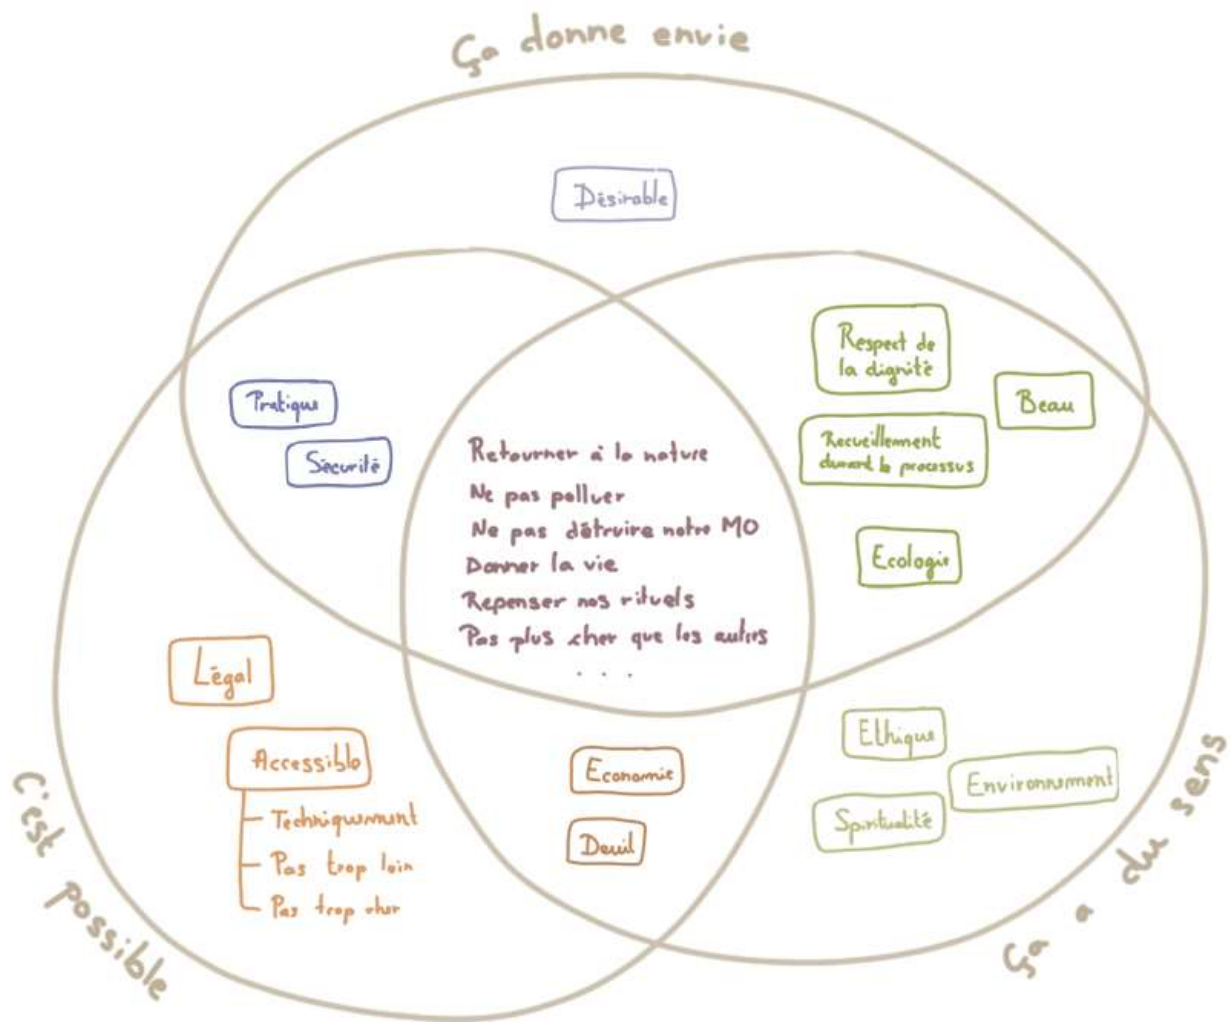 Ça donne envie
Désirable
Pratique
Sécurité
Respect de
la dignité
Beau
Recueillement
durant le processus
Ecologie
Retourner à la nature
Ne pas polluer
Ne pas détruire notre MO
Donner la vie
Repenser nos rituels
Pas plus cher que les autres
. . .
Légal
Accessible
Techniquement
Pas trop loin
Pas trop cher
Economie
Deuil
Ethique
Environnement
Spiritualité
C'est possible
Ça a du sens